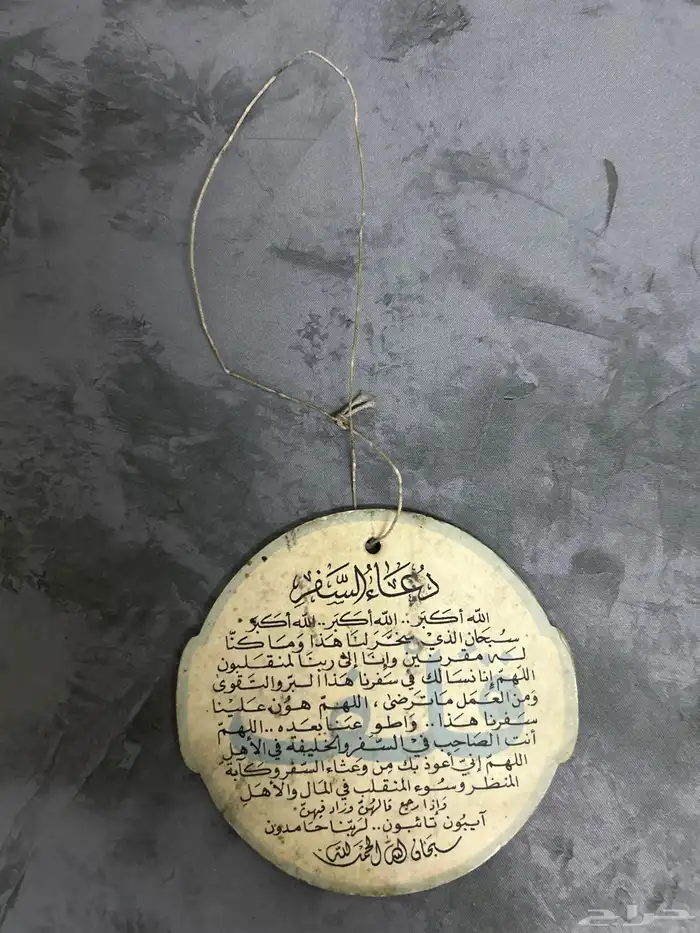 دُعَاءُ السَّفَرِ
الله أكَبَر.. الله أكَبَر.. الله أكَبَر
سُبحَان الذي سَخَّرَ لنَا هَذَا وَمَا كنَّا
له مقرنين وَإنَّا إلىٰ ربنَا لمنقَلبُون
اللهَمّ إنا نسَالك في سَفرنَا هَذَا البرّ والتَّقوىٰ
وَمنَ العَمَل مَا تَرضىٰ، اللهمّ هوّن علينَا
سَفرنَا هذَا.. وَاطوِ عنَا بعدَه.. اللهمّ
أنتَ الصَاحِب في السّفر والخليفَة في الأهل
اللهمّ إني أعوذ بك مِن وَعثَاء السّفر وكآبة
المنظر وسُوء المنقلب في المَال والأهلِ
وَإذا رجع قالهنّ وزاد فيهنّ
آيبُون تَائبُون.. لرَبّنَا حَامدون
سبحَان الله الحَمد لله
حراج